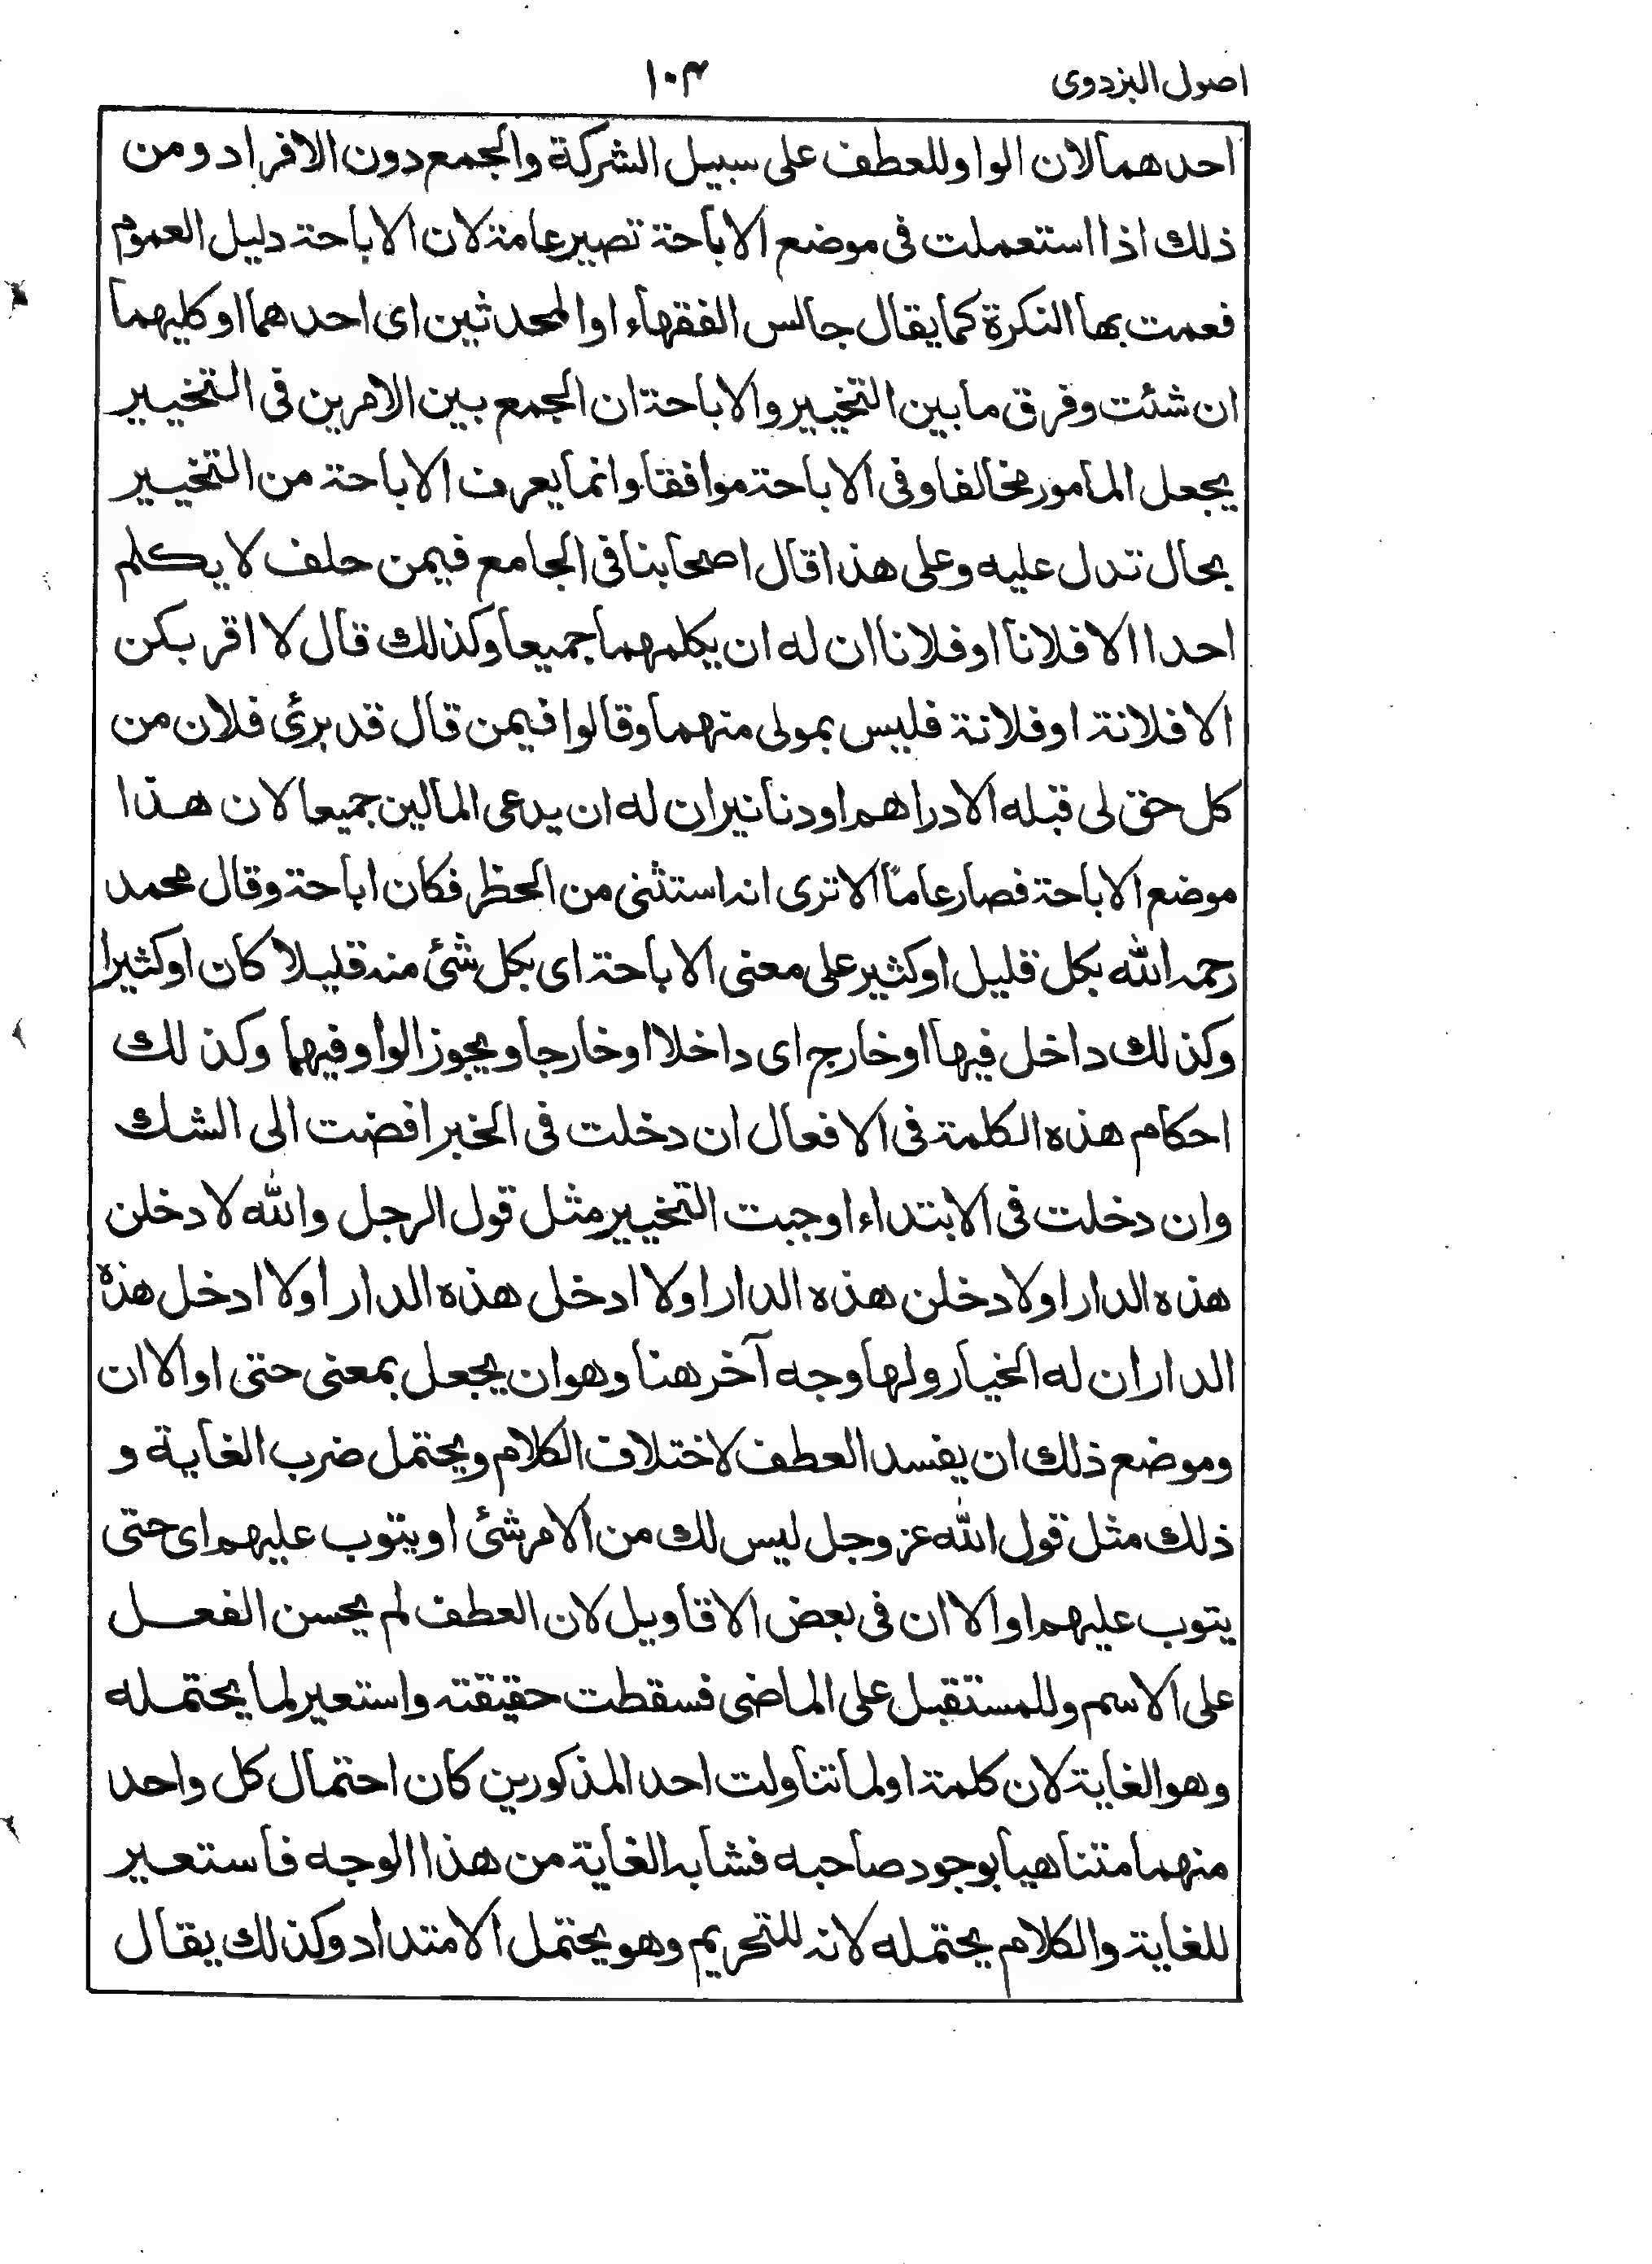 اصول البزدوى
۱۰۴
احدهما لان الواو للعطف على سبيل الشركة والجمع دون الافراد ومن
ذلك اذا استعملت فى موضع الاباحة تصير عامة لان الاباحة دليل العموم
فعمت بها النكرة كما يقال جالس الفقهاء او المحدثين اى احدهما او كليهما
ان شئت وفرق ما بين التخيير والاباحة ان الجمع بين الامرين فى التخيير
يجعل المأمور مخالفا وفى الاباحة موافقا وانما يعرف الاباحة من التخيير
بحال تدل عليه وعلى هذا قال اصحابنا فى الجامع فيمن حلف لا يكلم
احدا الا فلانا او فلانا ان له ان يكلمهما جميعا وكذلك قال لا اقربكن
الا فلانة او فلانة فليس بمولى منهما وقالوا فيمن قال قد برئ فلان من
كل حق لى قبله الا دراهم او دنانير ان له ان يدعى المالين جميعا لان هذا
موضع الاباحة فصار عاماً الا ترى انه استثنى من الحظر فكان اباحة وقال محمد
رحمه الله بكل قليل او كثير على معنى الاباحة اى بكل شئ منه قليلا كان او كثيرا
وكذلك داخل فيها او خارج اى داخلا او خارجا ويجوز الواو فيهما وكذلك
احكام هذه الكلمة فى الافعال ان دخلت فى الخبر افضت الى الشك
وان دخلت فى الابتداء اوجبت التخيير مثل قول الرجل والله لادخلن
هذه الدار اولادخلن هذه الدار اولا ادخل هذه الدار اولا ادخل هذه
الدار ان له الخيار ولها وجه آخر هنا وهو ان يجعل بمعنى حتى او الا ان
وموضع ذلك ان يفسد العطف لاختلاف الكلام ويحتمل ضرب الغاية و
ذلك مثل قول الله عز وجل ليس لك من الامر شئ او يتوب عليهم اى حتى
يتوب عليهم او الا ان فى بعض الاقاويل لان العطف لم يحسن الفعل
على الاسم وللمستقبل على الماضى فسقطت حقيقته واستعير لما يحتمله
وهو الغاية لان كلمة او لما تناولت احد المذكورين كان احتمال كل واحد
منهما متناهيا بوجود صاحبه فشابه الغاية من هذا الوجه فاستعير
للغاية والكلام يحتمله لانه للتحريم وهو يحتمل الامتداد وكذلك يقال